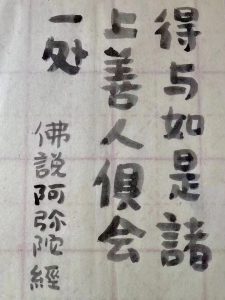 得与如是諸
上善人俱会
一处
佛說阿弥陀經